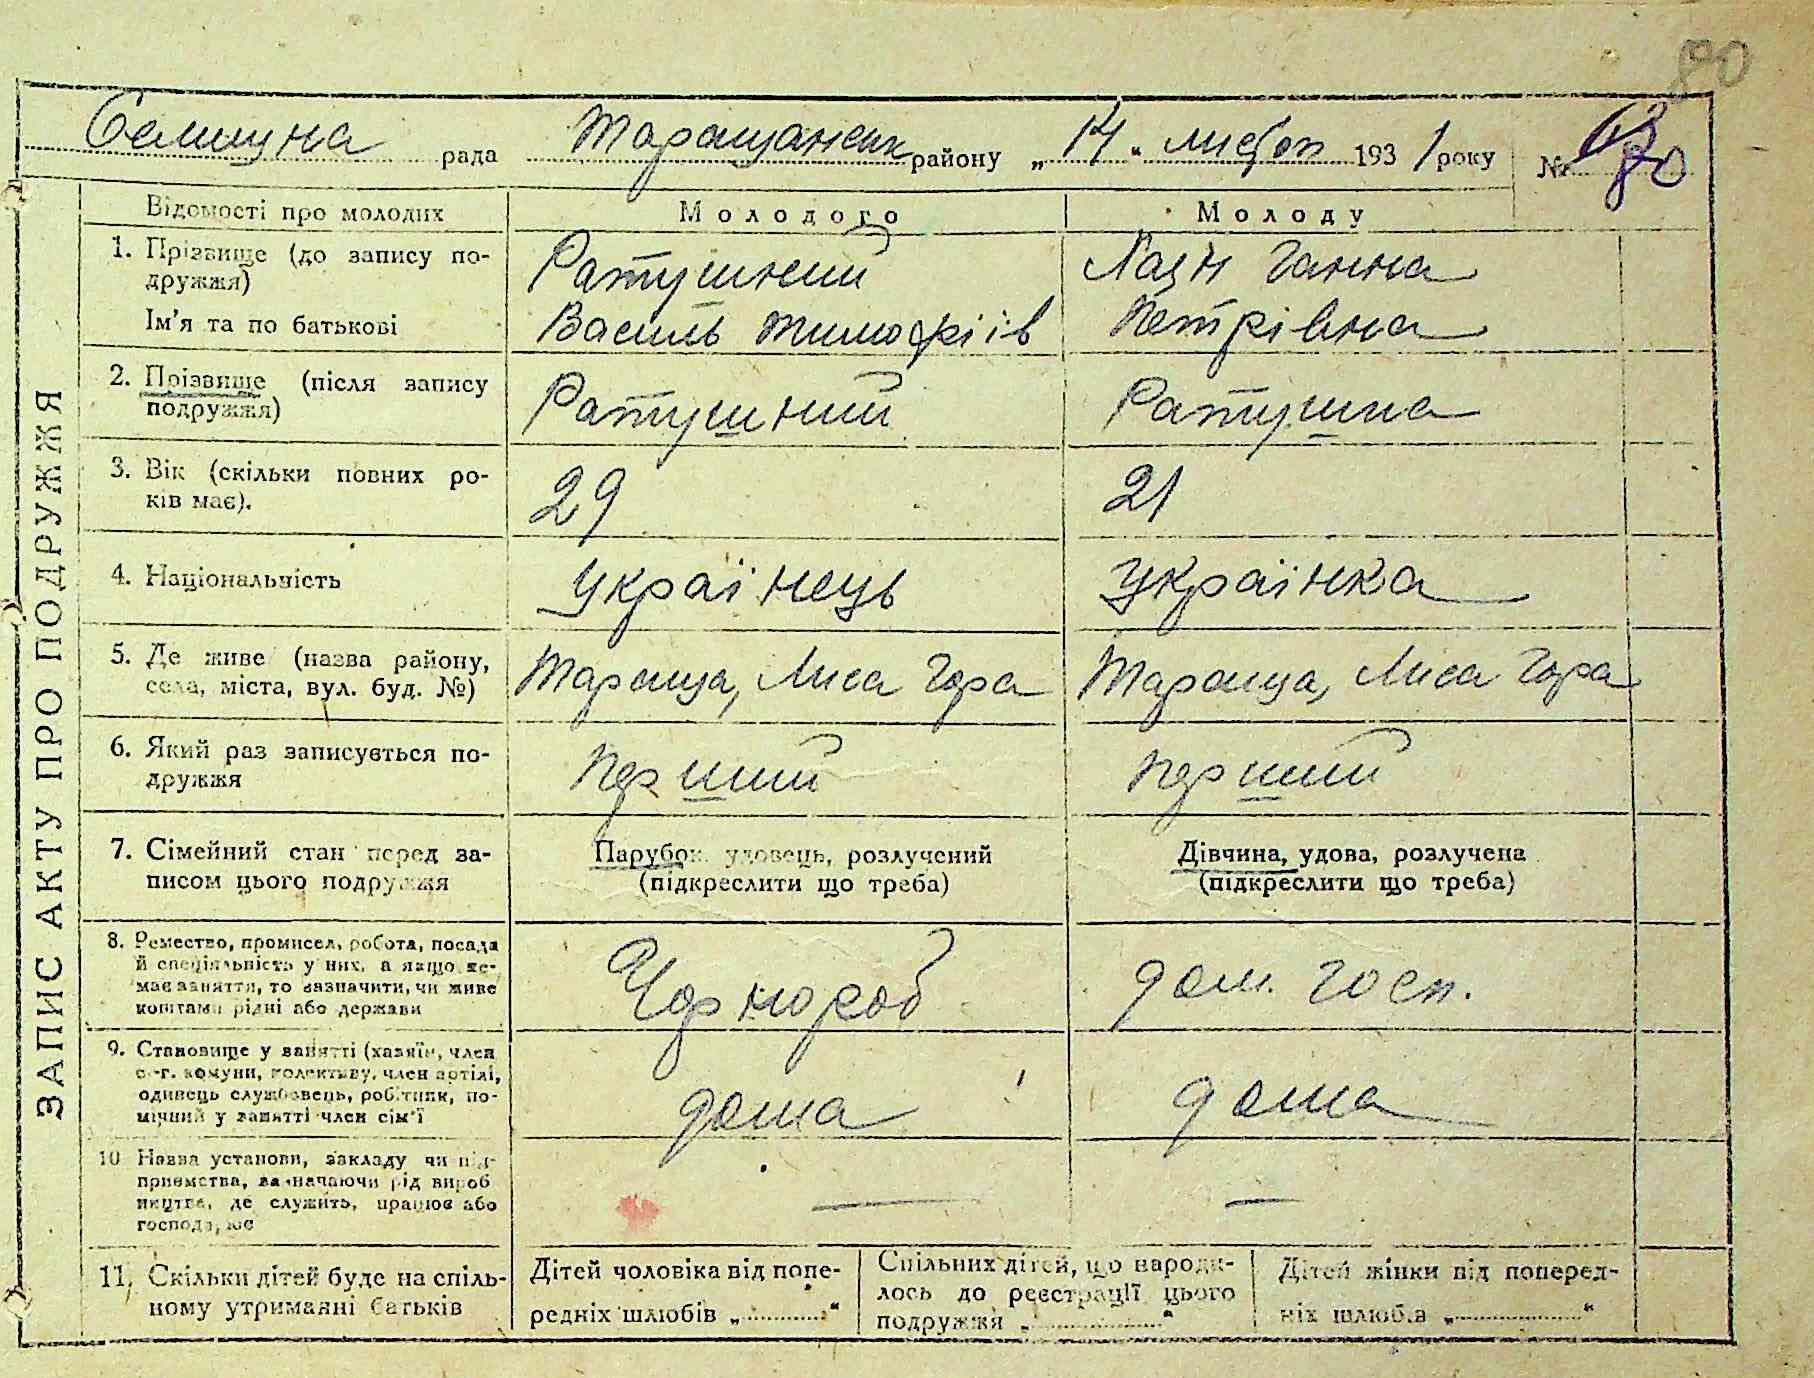 80
Селищна рада Таращанськ району „14“ листоп 1931 року № 80
ЗАПИС АКТУ ПРО ПОДРУЖЖЯ
Відомості про молодих Молодого Молоду
1. Прізвище (до запису по- Ратушний Лазн Ганна
дружжя)
Ім’я та по батькові Василь Тимофіїв Петрівна
2. Прізвище (після запису Ратушний Ратушна
подружжя)
3. Вік (скільки повних ро- 29 21
ків має).
4. Національність Українець Українка
5. Де живе (назва району, Тараща, Лиса Гора Тараща, Лиса Гора
села, міста, вул. буд. №)
6. Який раз записується по- Перший Перший
дружжя
7. Сімейний стан перед за- Парубок, удовець, розлучений Дівчина, удова, розлучена
писом цього подружжя (підкреслити що треба) (підкреслити що треба)
8. Ремество, промисел, робота, посада
й спеціяльність у них, а якщо не-
має заняття, то зазначити, чи живе Чорнороб дом. госп.
коштами рідні або держави
9. Становище у занятті (хазяїн, член
с.-г. комуни, колективу, член артілі,
одинець службовець, робітник, по- дома дома
мічний у занятті член сім’ї
10 Назва установи, закладу чи під-
приємства, зазначаючи рід вироб
ництва, де служить, працює або — —
господарює
11. Скільки дітей буде на спіль- Дітей чоловіка від попе- Спільних дітей, що народи- Дітей жінки від поперед-
ному утриманні батьків редніх шлюбів „......“ лось до реєстрації цього ніх шлюбів „......“
подружжя „......“